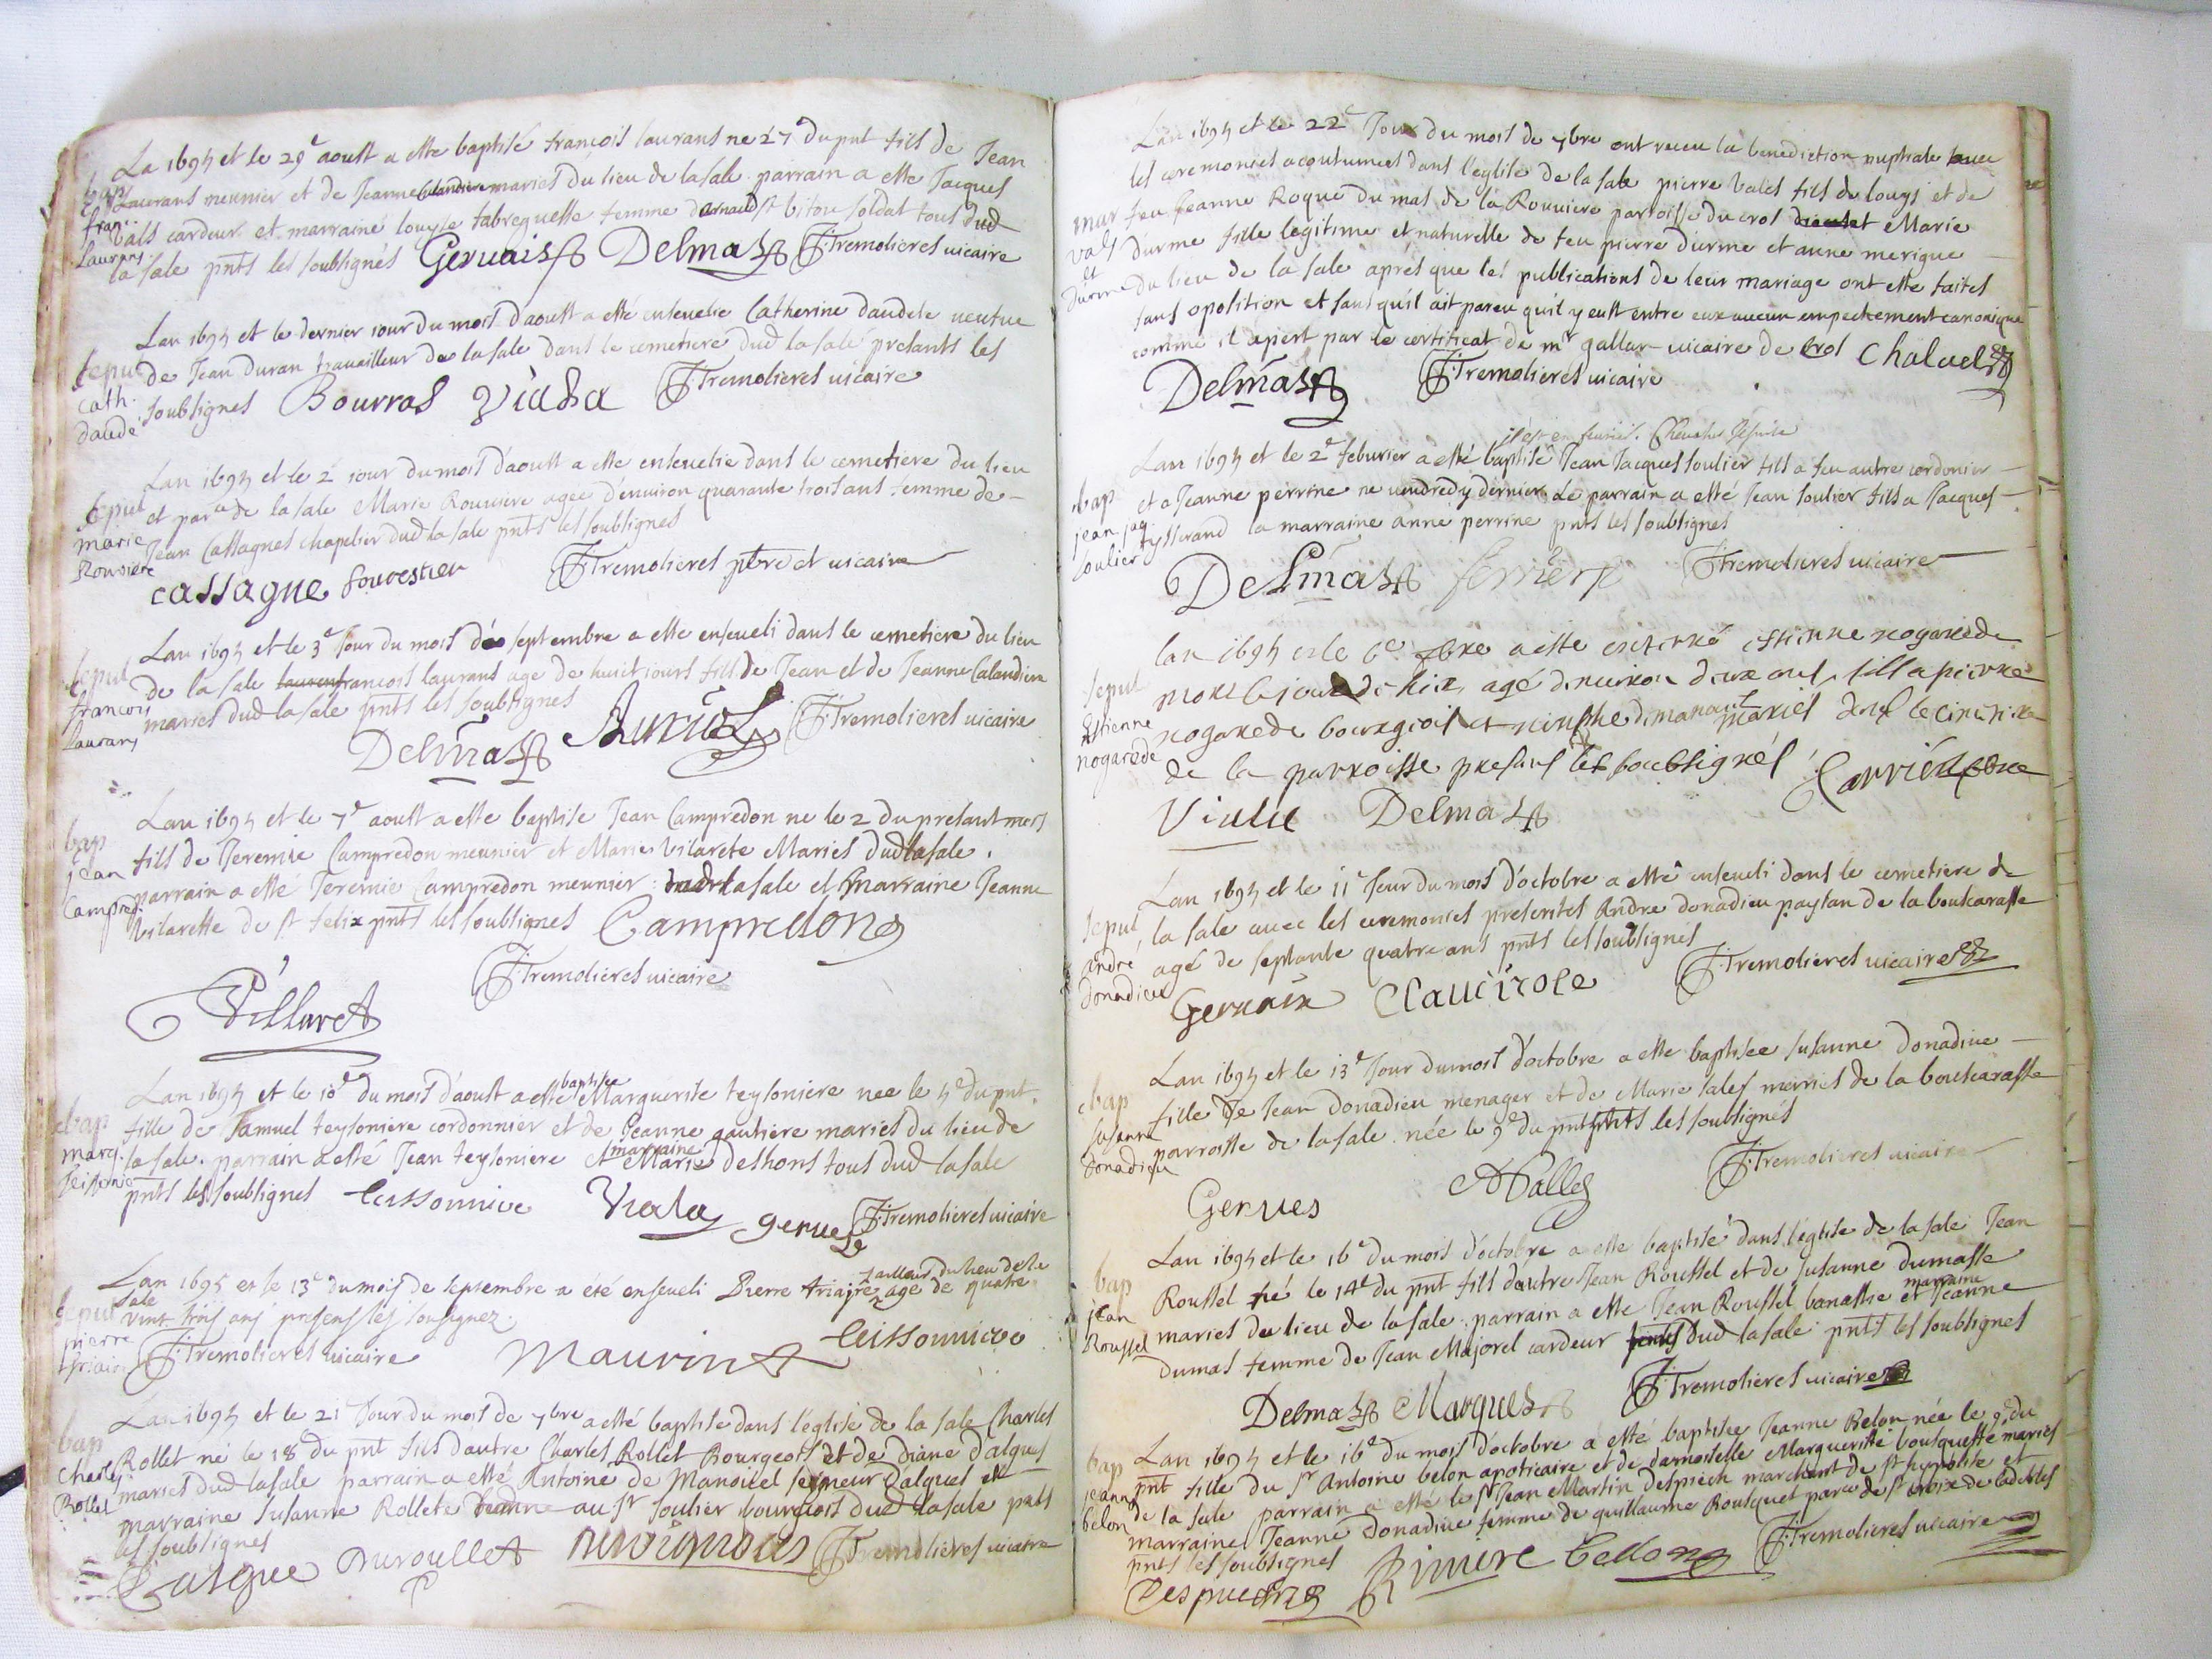 La 1695 et le 29e aoust a este baptisé francois laurans ne 27 du pnt fils de Jean
bap
Laurans meunier et de Jeanne Calandière mariés du lieu de lasale parrain a este Jacques
fran:
vals cardeur et marraine louyse fabreguesse femme darnaud st bitou soldat tous dud
Laurans
la sale pnts les soubsignés Gervais Delmas JTremolieres vicaire
Lan 1695 et le dernier iour du mois daoust a esté ensevelie Catherine daudete veufue
sepu
de Jean Duran travailleur de lasale dans le cemetiere dud lasale presants les
cath.
daudé
soubsignes Bourras Viala JTremolieres vicaire
Lan 1695 et le 2 iour du mois d'aoust a este ensevelie dans le cemetiere du lieu
sepul
et parce de lasale Marie Rouviere agée denviron quarante trois ans femme de
marie
Jean Cassagnes chapelier dud lasale pnts les soubsignes
Rouviere
cassagne fourestier JTremolieres ptre et vicaire
Lan 1695 et le 3e Jour du mois de septembre a este enseveli dans le cemetiere du lieu
sepul
de la sale francois laurans age de huict iours fils de Jean et de Jeanne Calandiere
francois
mariés dud lasale pnts les soubsignes
Laurans
Delmas Auriol JTremolieres vicaire
Lan 1695 et le 7e aoust a este baptise Jean Campredon ne le 2 du presant mois
bap
fils de Jeremie Campredon meunier et Marie vilarete Mariés dud lasale.
jean
parrain a esté Jeremie Campredon meunier dud lasale et Marraine Jeanne
Campred.
vilarette de st felix pnts les soubsignes Campredon
JTremolieres vicaire
Villaret
Lan 1695 et le 10e du mois daoust a esté baptisee Marguerite teysoniere nee le 5e du pnt.
bap
fille de Samuel teysoniere cordonnier et de Jeanne gautiere mariés du lieu de
marg.
lasale. parrain a esté Jean teysoniere et marraine Marie deshons tous dud lasale
pnts les soubsignes teissonniere Viala gerves JTremolieres vicaire
Lan 1695 et le 13e du mois de septembre a été enseveli Pierre triaire tailleur du lieu de la
sale age de quatre
sepul
vint trois ans presens les sousignez.
pierre
triaire
JTremolieres vicaire Maurin teissonniere
Lan 1695 et le 21 Jour du mois de 7bre a esté baptise dans l'eglise de la sale Charles
bap
Rollet né le 18e du pnt fils dautre Charles Rollet Bourgeois et de Diane dalgues
Charles
mariés dud lasale parrain a esté Antoine de Manoilel seigneur dalgues et
Rollet
marraine Susanne Rollete au sr soulier bourgeois dud lasale pnts
les soubsignes
Duroullet JTremolieres vicaire
Lan 1695 et le 22e Jour du mois de 7bre ont receu la benediction nuptiale avec
les ceremonies acoutumees dans l'eglise de la sale pierre Vales fils de louys et de
mar
feu Jeanne Roque du mas de la Rouviere parroisse du crol et Marie
vals
durme fille legitime et naturelle de feu pierre durme et anne merigue
et
durme
du lieu de la sale apres que les publications de leur mariage ont este faites
sans oposition et sans qu'il ait pareu quil y eust entre eux aucun empechement canonique
comme il apert par le certificat de mr gallar vicaire de Crol Chaluel
Delmas JTremolieres vicaire
il est en fevrier.
Lan 1695 et le 2e feburier a esté baptisé Jean Jacques soulier fils a feu autre cordonier
bap
et a Jeanne perrine ne vendredy dernier. Le parrain a esté Jean soulier fils a Jacques
jean jaq.
tysserand la marraine anne perrine pnts les soubsignes
soulier
Delmas ferriere JTremolieres vicaire
lan 1695 et le 6e 8bre a este enterré estienne nogarede
sepul
mort le jour de hier agé denviron deux ans fils a pierre
Estienne
nogarede bourgeois et ninphe demanoit mariés dans le cimetiere
nogarede
de la parroisse presans les soubsignés Carrière ptre
Viale Delmas
Lan 1695 et le 11e Jour du mois d'octobre a esté enseveli dans le cemetiere de
sepul
la sale avec les ceremonies prescrites Andre donadieu paysan de la bouscarasse
andré
agé de septante quatre ans pnts les soubsignes
donadieu
Gervaix Clauzirole JTremolieres vicaire
Lan 1695 et le 13e Jour du mois d'octobre a este baptisee susanne donadive
bap
fille de Jean donadieu menager et de Marie sales mariés de la bouscarasse
susanne
parroisse de lasale née le 9e du pnt pnts les soubsignés
donadieu
JTremolieres vicaire
Gerves Salles
Lan 1695 et le 16e du mois d'octobre a este baptisé dans l'eglise de la sale Jean
bap
Roussel né le 14e du pnt fils dautre Jean Roussel et de susanne dumasse
jean
mariés du lieu de la sale. parrain a este Jean Roussel banastie et marraine Jeanne
Roussel
dumas femme de Jean Majorel cardeur dud lasale pnts les soubsignes
Delmas Marques JTremolieres vicaire
Lan 1695 et le 16e du mois d'octobre a esté baptisee Jeanne Belon née le 9e du
bap
pnt fille du sr Antoine belon apoticaire et de damoiselle Margueritte bousquette mariés
jeanne
de la sale parrain a esté le sr Jean Martin despiech marchant de st hypolite et
belon
marraine Jeanne Donadive femme de guillaume Bousquet parce de st croix de caderles
pnts les soubsignes
Despuech Riviere Bellon JTremolieres vicaire